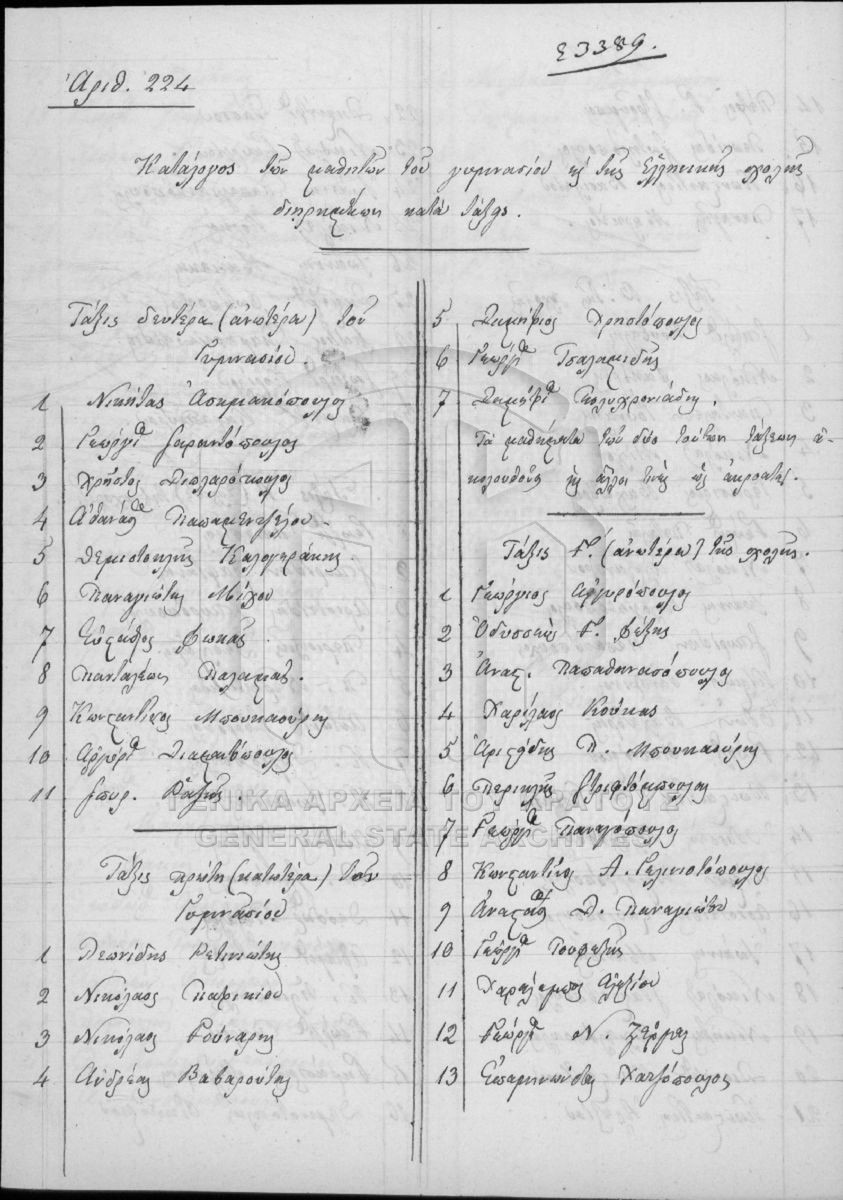 Σ3389.
Ἀριθ. 224
Κατάλογος τῶν μαθητῶν τοῦ γυμνασίου καὶ τῆς Ἑλληνικῆς σχολῆς
διῃρημένων κατὰ τάξεις.
Τάξις δευτέρα (ἀνωτέρα) τοῦ
Γυμνασίου.
1 Νικήτας Ἀσημακόπουλος
2 Γεώργιος Σαραντόπουλος
3 Χρῆστος
4 Ἀθανάσιος
5 Θεμιστοκλῆς Καλογεράκης
6 Παναγιώτης Μίχου
7 Εὐστάθιος Φωκᾶς
8 Πανταλέων
9 Κωνσταντῖνος Μπουκαούρης
10 Ἀργύριος Διαμαντόπουλος
11 Σπυρ. Ῥαζῆς
Τάξις πρώτη (κατωτέρα) τοῦ
Γυμνασίου
1 Λεωνίδης Ῥετινιώτης
2 Νικόλαος Πατρικίου
3 Νικόλαος Ῥούναρης
4 Ἀνδρέας Βαβαρούτας
5 Δημήτριος Χρηστόπουλος
6 Γεώργιος Τσαλαμιδης
7 Δημήτριος Πολυχρονιάδης.
Τὰ μαθήματα τῶν δύο τούτων τάξεων ἀ-
κολουθοῦν καὶ ἄλλοι τινὲς ὡς ἀκροαταί.
Τάξις Γ. (ἀνωτέρα) τῆς σχολῆς.
1 Γεώργιος Ἀργυρόπουλος
2 Ὀδυσσεὺς Γ. Φέξης
3 Ἀναστ. Παπαθανασόπουλος
4 Χαρίλαος Κούκας
5 Ἀριστείδης Π. Μπουκαούρης
6 Περικλῆς Στριφτόμπουλας
7 Γεώργιος Παναγόπουλος
8 Κωνσταντῖνος Α. Γελινιοτόπουλος
9 Ἀναστάσιος Δ. Παναγιώτου
10 Γεώργιος Τουφεξῆς
11 Χαράλαμπος Ἀλεξίου
12 Γεώργιος Ν. Ζέρμας
13 Ἐπαμεινώνδας Χατζόπουλος
ΓΕΝΙΚΑ ΑΡΧΕΙΑ ΤΟΥ ΚΡΑΤΟΥΣ
GENERAL STATE ARCHIVES